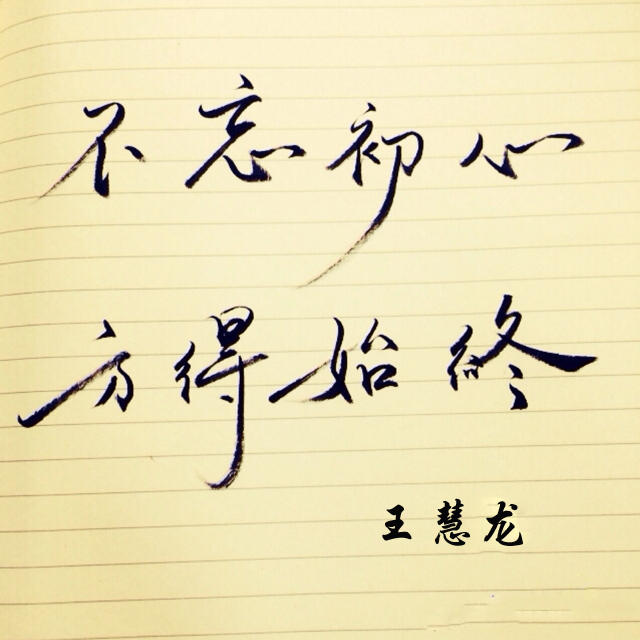 不忘初心
方得始终
王慧龙